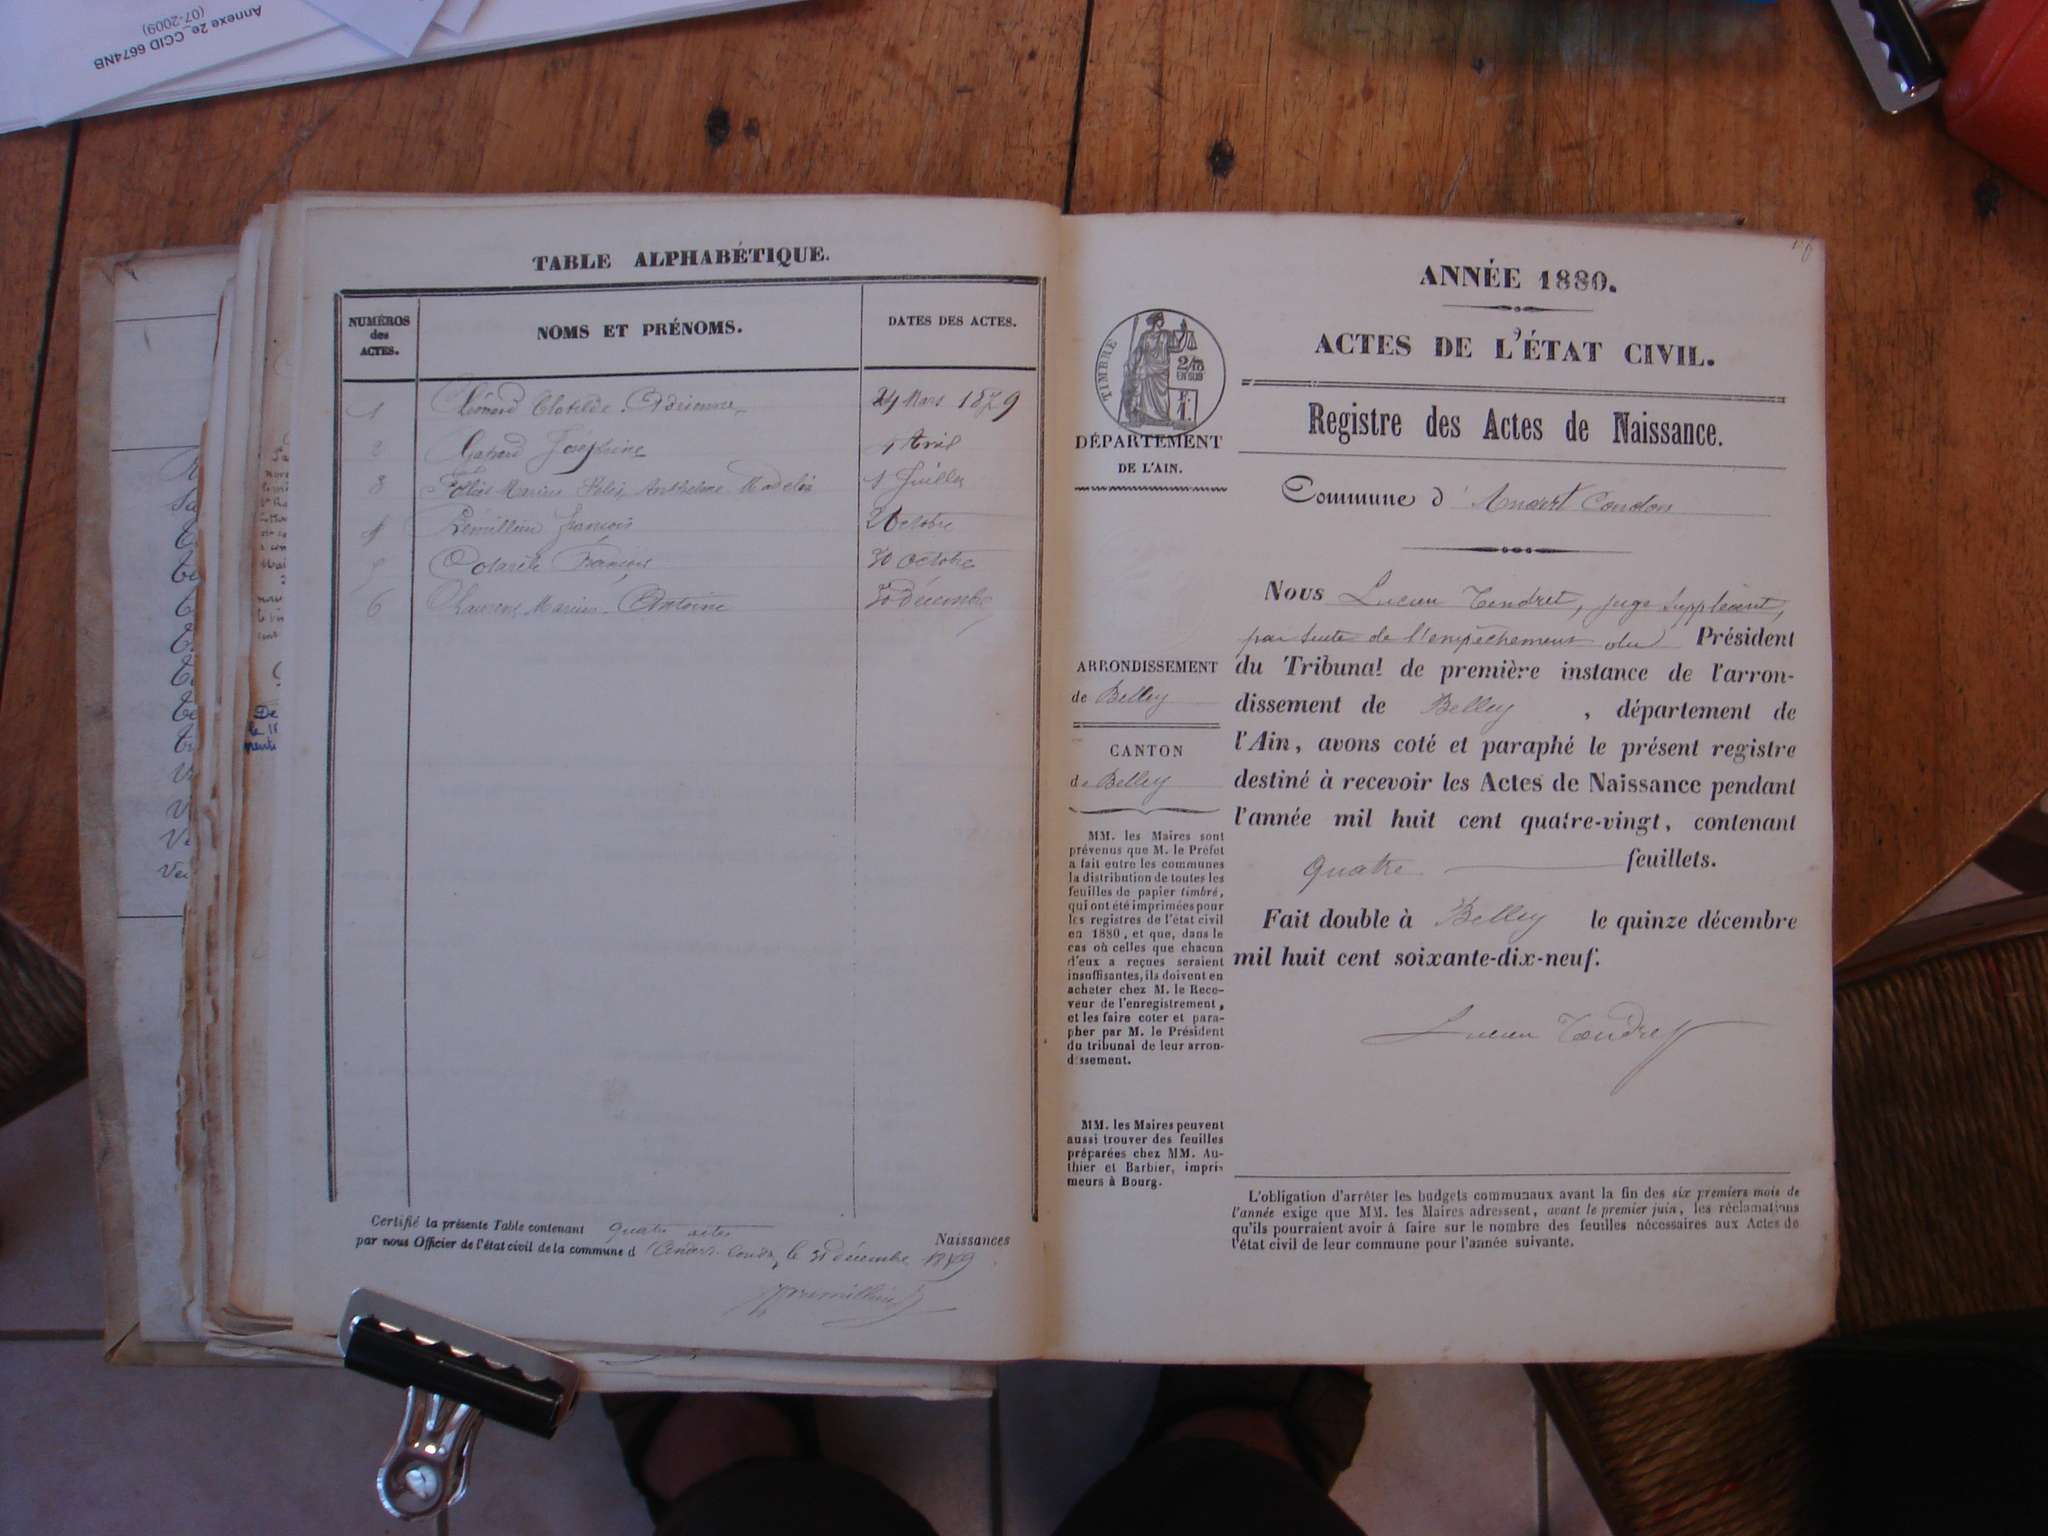 Annexe 2e_CCID 6674NB
(07-2009)
TABLE ALPHABÉTIQUE.
NUMÉROS
des
ACTES.
NOMS ET PRÉNOMS.
DATES DES ACTES.
1 Clotilde 24 Mars 1879
2 Joséphine 1 Avril
3 Marius Anthelme 1 Juillet
4 François 2 Octobre
5 François 30 octobre
6 Marius Antoine 30 décembre
Certifié la présente Table contenant quatre actes Naissances
par nous Officier de l'état civil de la commune d le 31 décembre 1879
ANNÉE 1880.
ACTES DE L'ÉTAT CIVIL.
Registre des Actes de Naissance.
Commune d' Andert Condon
TIMBRE
2/10
EN SUS
DÉPARTEMENT
DE L'AIN.
ARRONDISSEMENT
de Belley
CANTON
de Belley
MM. les Maires sont
prévenus que M. le Préfet
a fait entre les communes
la distribution de toutes les
feuilles de papier timbré,
qui ont été imprimées pour
les registres de l'état civil
en 1880, et que, dans le
cas où celles que chacun
d'eux a reçues seraient
insuffisantes, ils doivent en
acheter chez M. le Rece-
veur de l'enregistrement,
et les faire coter et para-
pher par M. le Président
du tribunal de leur arron-
dissement.
MM. les Maires peuvent
aussi trouver des feuilles
préparées chez MM. Au-
thier et Barbier, impri-
meurs à Bourg.
Nous Lucien Tendret, juge suppléant,
par suite de l'empêchement du Président
du Tribunal de première instance de l'arron-
dissement de Belley , département de
l'Ain, avons coté et paraphé le présent registre
destiné à recevoir les Actes de Naissance pendant
l'année mil huit cent quatre-vingt, contenant
quatre feuillets.
Fait double à Belley le quinze décembre
mil huit cent soixante-dix-neuf.
Lucien Tendret
L'obligation d'arrêter les budgets communaux avant la fin des six premiers mois de
l'année exige que MM. les Maires adressent, avant le premier juin, les réclamations
qu'ils pourraient avoir à faire sur le nombre des feuilles nécessaires aux Actes de
l'état civil de leur commune pour l'année suivante.